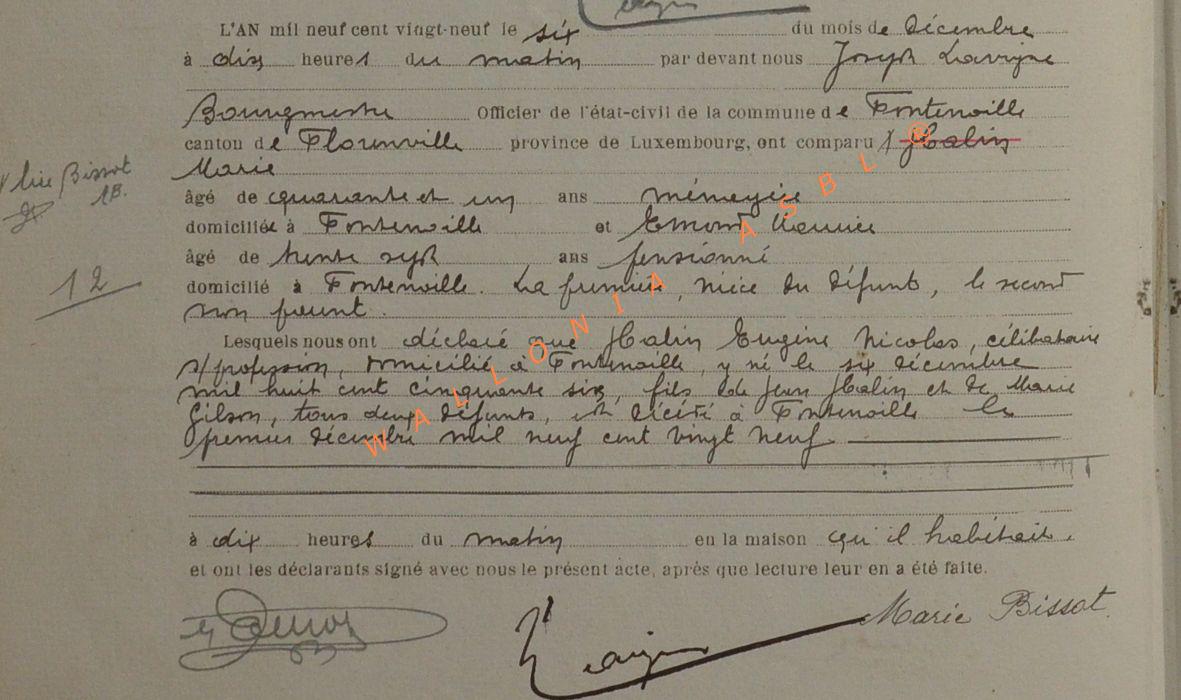 L'AN mil neuf cent vingt-neuf le six du mois de Décembre
à dix heures du matin par devant nous Joseph Lavigne
Bourgmestre Officier de l'état-civil de la commune de Fontenoille
canton de Florenville province de Luxembourg, ont comparu Halin
Marie
lire Bissot
âgé de quarante et un ans ménagère
domiciliée à Fontenoille et Emond
âgé de trente sept ans pensionné
12
domicilié à Fontenoille. La première, nièce du défunt, le second
non parent.
Lesquels nous ont déclaré que Halin Eugène Nicolas, célibataire
s/profession, domicilié à Fontenoille, y né le six décembre
mil huit cent cinquante six, fils de Jean Halin et de Marie
Gilson, tous deux défunts, est décédé à Fontenoille le
premier décembre mil neuf cent vingt neuf
à dix heures du matin en la maison qu'il habitait.
et ont les déclarants signé avec nous le présent acte, après que lecture leur en a été faite.
Marie Bissot
WALLONIA ASBL ®